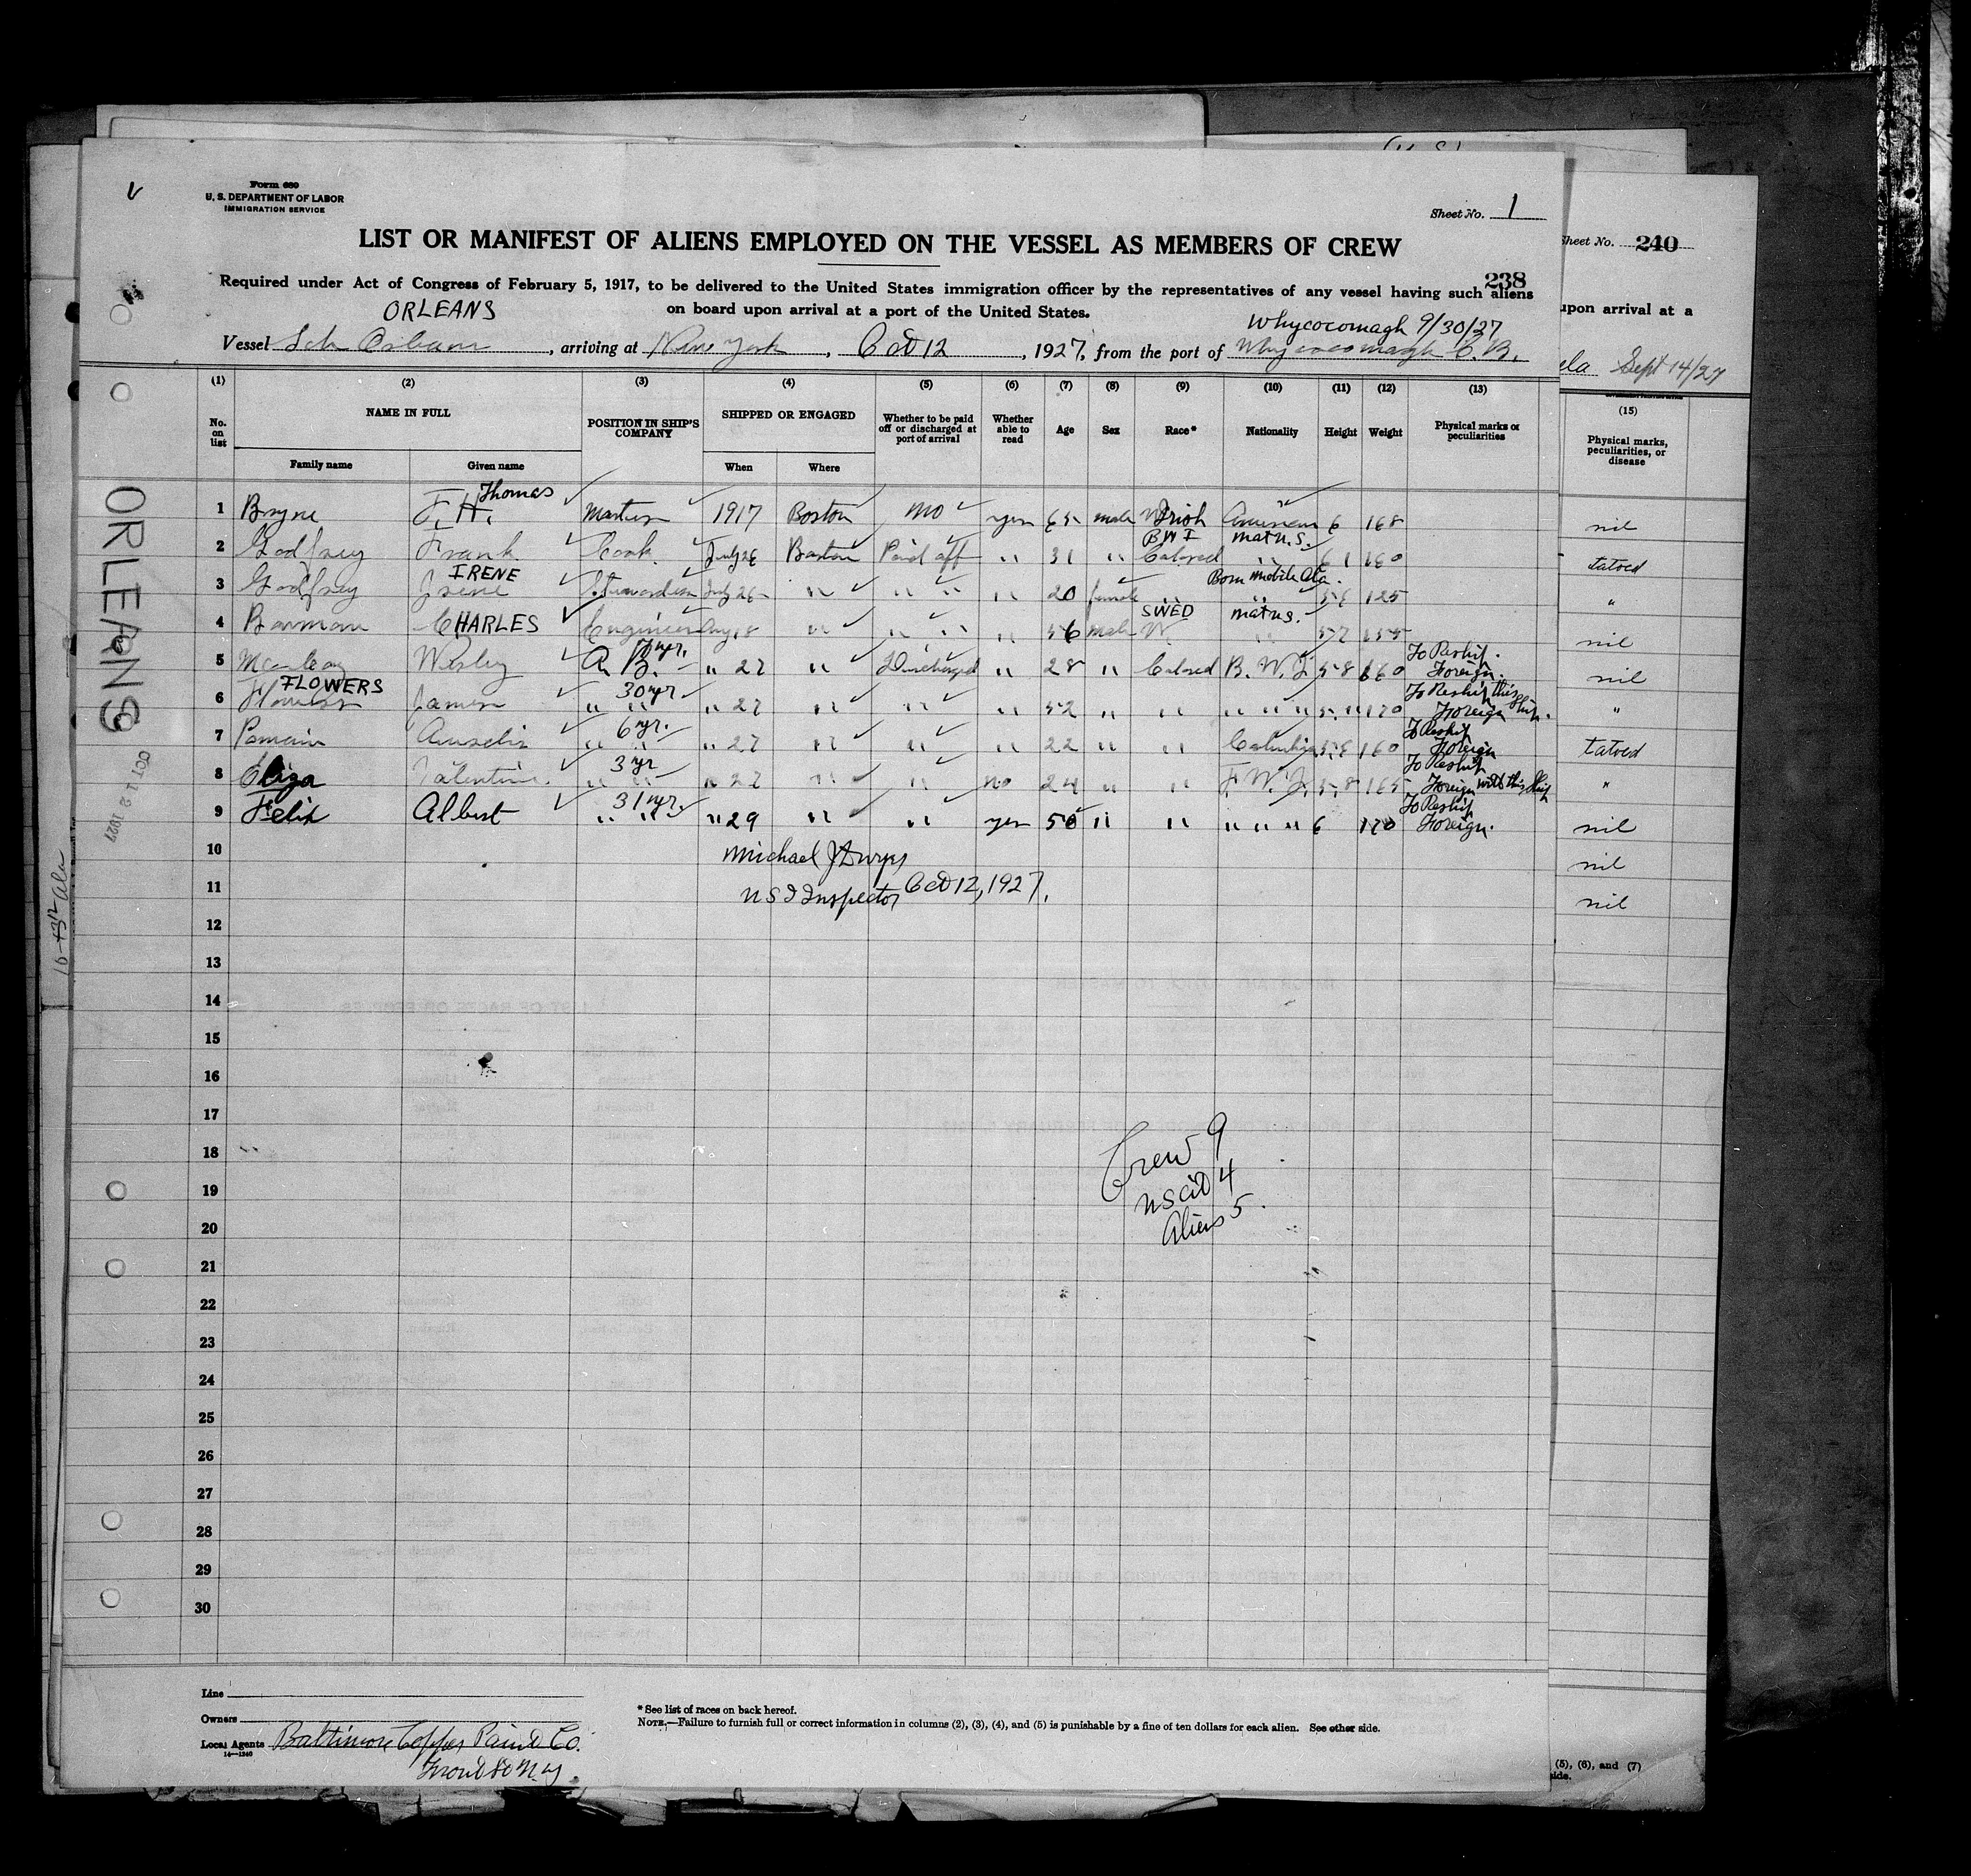 Form 680
U. S. DEPARTMENT OF LABOR
IMMIGRATION SERVICE
Sheet No. 1
LIST OR MANIFEST OF ALIENS EMPLOYED ON THE VESSEL AS MEMBERS OF CREW
Sheet No. 240
238
Required under Act of Congress of February 5, 1917, to be delivered to the United States immigration officer by the representatives of any vessel having such aliens
on board upon arrival at a port of the United States.
upon arrival at a
ORLEANS
Whycocomagh 9/30/27
Vessel Sch Orleans, arriving at New York, Oct 12, 1927, from the port of Whycocomagh C. B.
ela Sept 14/27
(1) (2) (3) (4) (5) (6) (7) (8) (9) (10) (11) (12) (13)
(15)
No. on list
NAME IN FULL
Family name Given name
POSITION IN SHIP'S COMPANY
SHIPPED OR ENGAGED
When Where
Whether to be paid off or discharged at port of arrival
Whether able to read
Age Sex Race* Nationality Height Weight
Physical marks or peculiarities
Physical marks, peculiarities, or disease
Thomas
1 Bryne F. H. Master 1917 Boston no yes 65 male Irish American 6 168
nil
B W I nat U.S.
2 Godfrey Frank Cook July 26 Boston Paid off " 31 " Colored " 6 1 160
tatoed
IRENE Born Mobile Ala.
3 Godfrey Irene Stewardess July 26 " " " " 20 female " " 5-6 125
"
SWED nat U.S.
4 Bowman CHARLES Engineer Aug 18 " " " " 56 male W. " 5-7 155
nil
7 yr. To Reship.
5 Wesley A. B. " 27 " Discharged " 28 " Colored B. W. I. 5-8 160 Foreign.
nil
FLOWERS 30 yr To Reship this Ship.
6 Flowers James " " " 27 " " " 52 " " " " " 170 Foreign
"
6 yr. To Reship
7 " " " 27 " " " 22 " " 5-6 160 Foreign
tatoed
3 yr To Reship
8 Eliza Valentine " " " 27 " " no 24 " " F. W. I. 5-8 165 Foreign with this Ship
"
31 yr. To Reship
9 Felix Albert " " " 29 " " yes 50 " " " " " 6 170 Foreign.
nil
10 Michael J Dwyer
nil
11 U S I Inspector Oct 12, 1927.
nil
12
13
14
15
16
17
18
19
20
21
22
23
24
25
26
27
28
29
30
Crew 9
US cit 4
Aliens 5
ORLEANS
OCT 12 1927
Line
Owners
Local Agents Baltimore Copper Paint Co.
14—1240
Front St N. Y.
* See list of races on back hereof.
NOTE.—Failure to furnish full or correct information in columns (2), (3), (4), and (5) is punishable by a fine of ten dollars for each alien. See other side.
(5), (6), and (7)
side.